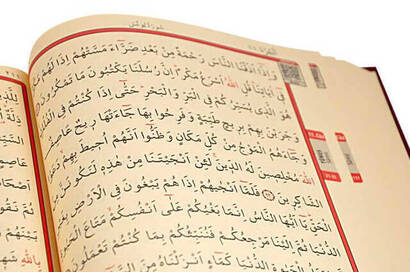 سُورَةُ يُونُسَ
وَإِذَا أَذَقْنَا النَّاسَ رَحْمَةً مِنْ بَعْدِ ضَرَّاءَ مَسَّتْهُمْ إِذَا لَهُمْ
فِي آيَاتِنَا قُلِ اللهُ أَسْرَعُ مَكْرًا إِنَّ رُسُلَنَا يَكْتُبُونَ مَا تَمْكُرُونَ
هُوَ الَّذِي يُسَيِّرُكُمْ فِي الْبَرِّ وَالْبَحْرِ حَتَّى إِذَا كُنْتُمْ فِي الْفُلْكِ
وَجَرَيْنَ بِهِمْ بِرِيحٍ طَيِّبَةٍ وَفَرِحُوا بِهَا جَاءَتْهَا رِيحٌ عَاصِفٌ
وَجَاءَهُمُ الْمَوْجُ مِنْ كُلِّ مَكَانٍ وَظَنُّوا أَنَّهُمْ أُحِيطَ بِهِمْ
اللهَ مُخْلِصِينَ لَهُ الدِّينَ لَئِنْ أَنْجَيْتَنَا مِنْ هٰذِهِ لَنَكُونَنَّ
الشَّاكِرِينَ فَلَمَّا أَنْجٰيهُمْ إِذَا هُمْ يَبْغُونَ فِي الْأَرْضِ بِغَيْرِ
الْحَقِّ يَا أَيُّهَا النَّاسُ إِنَّمَا بَغْيُكُمْ عَلَى أَنْفُسِكُمْ مَتَاعَ الْحَيٰوةِ
الدُّنْيَا ثُمَّ إِلَيْنَا مَرْجِعُكُمْ فَنُنَبِّئُكُمْ بِمَا كُنْتُمْ تَعْمَلُونَ
الْحَيٰوةِ الدُّنْيَا كَمَاءٍ أَنْزَلْنَاهُ مِنَ السَّمَاءِ